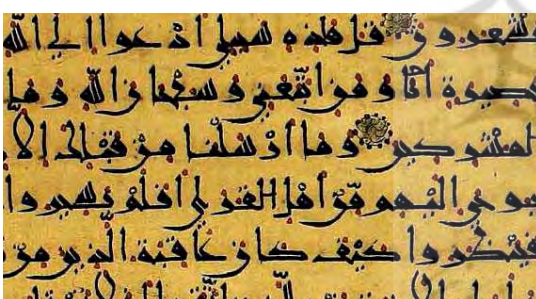 يشعرون قل هذه سبيلي أدعوا إلى الله
بصيرة أنا ومن اتبعني وسبحان الله وما
المشركين وما أرسلنا من قبلك إلا
نوحي إليهم من أهل القرى أفلم يسيروا
فينظروا كيف كان عاقبة الذين من